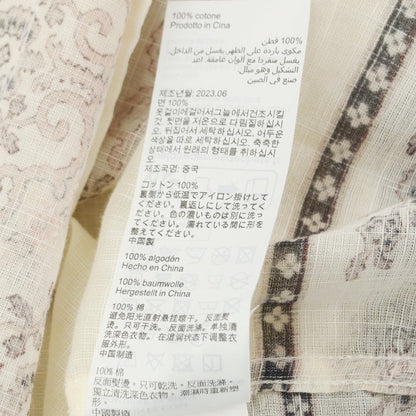 100% cotone
Prodotto in Cina
100% قطن
مكوى باردة على الظهر بسن من الداخل
يغسل منفردا مع ألوان غامقة. اعد
التشكيل وهو مبلل
صنع في الصين
제조년월: 2023.06
면 100%
옷걸이에걸어서그늘에서건조시킬
것. 뒷면을 저온으로 다림질하십시
오. 뒤집어서 세탁하십시오. 어두운
색상을 따로 세탁하십시오. 축축한
상태에서 원래의 형태를 취하십시
오.
제조국명: 중국
コットン 100%
裏側から低温でアイロン掛けしてく
ださい。裏返しにして洗ってくださ
い。色の濃いものは別に洗ってくださ
い。濡れている間に形を整えてくださ
い。
中国製
100% algodón
Hecho en China
100% baumwolle
Hergestellt in China
100% 棉
避免阳光直射悬挂晾干。反面熨
烫。只可干洗。反面洗涤。单独清
洗深色衣物。在潮湿状态下调整衣
服外形。
中国制造
100% 棉
反面熨燙。只可乾洗。反面洗滌。
獨立清洗深色衣物。潮濕時重新塑
形。